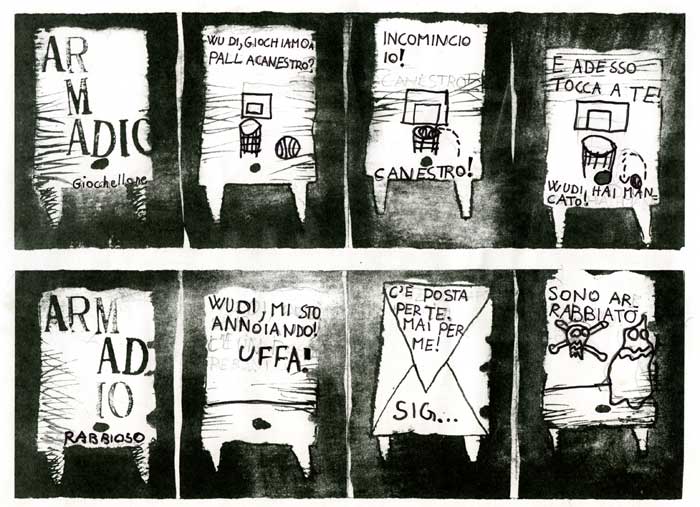 AR
M
ADIO
Giocherellone
WUDI, GIOCHIAMO A
PALLACANESTRO?
INCOMINCIO
IO!
CANESTRO!
E ADESSO
TOCCA A TE!
WUDI, HAI MAN-
CATO!
ARM
AD
IO
RABBIOSO
WUDI, MI STO
ANNOIANDO!
UFFA!
C'È POSTA
PER TE.
MAI PER
ME!
SIG...
SONO AR-
RABBIATO